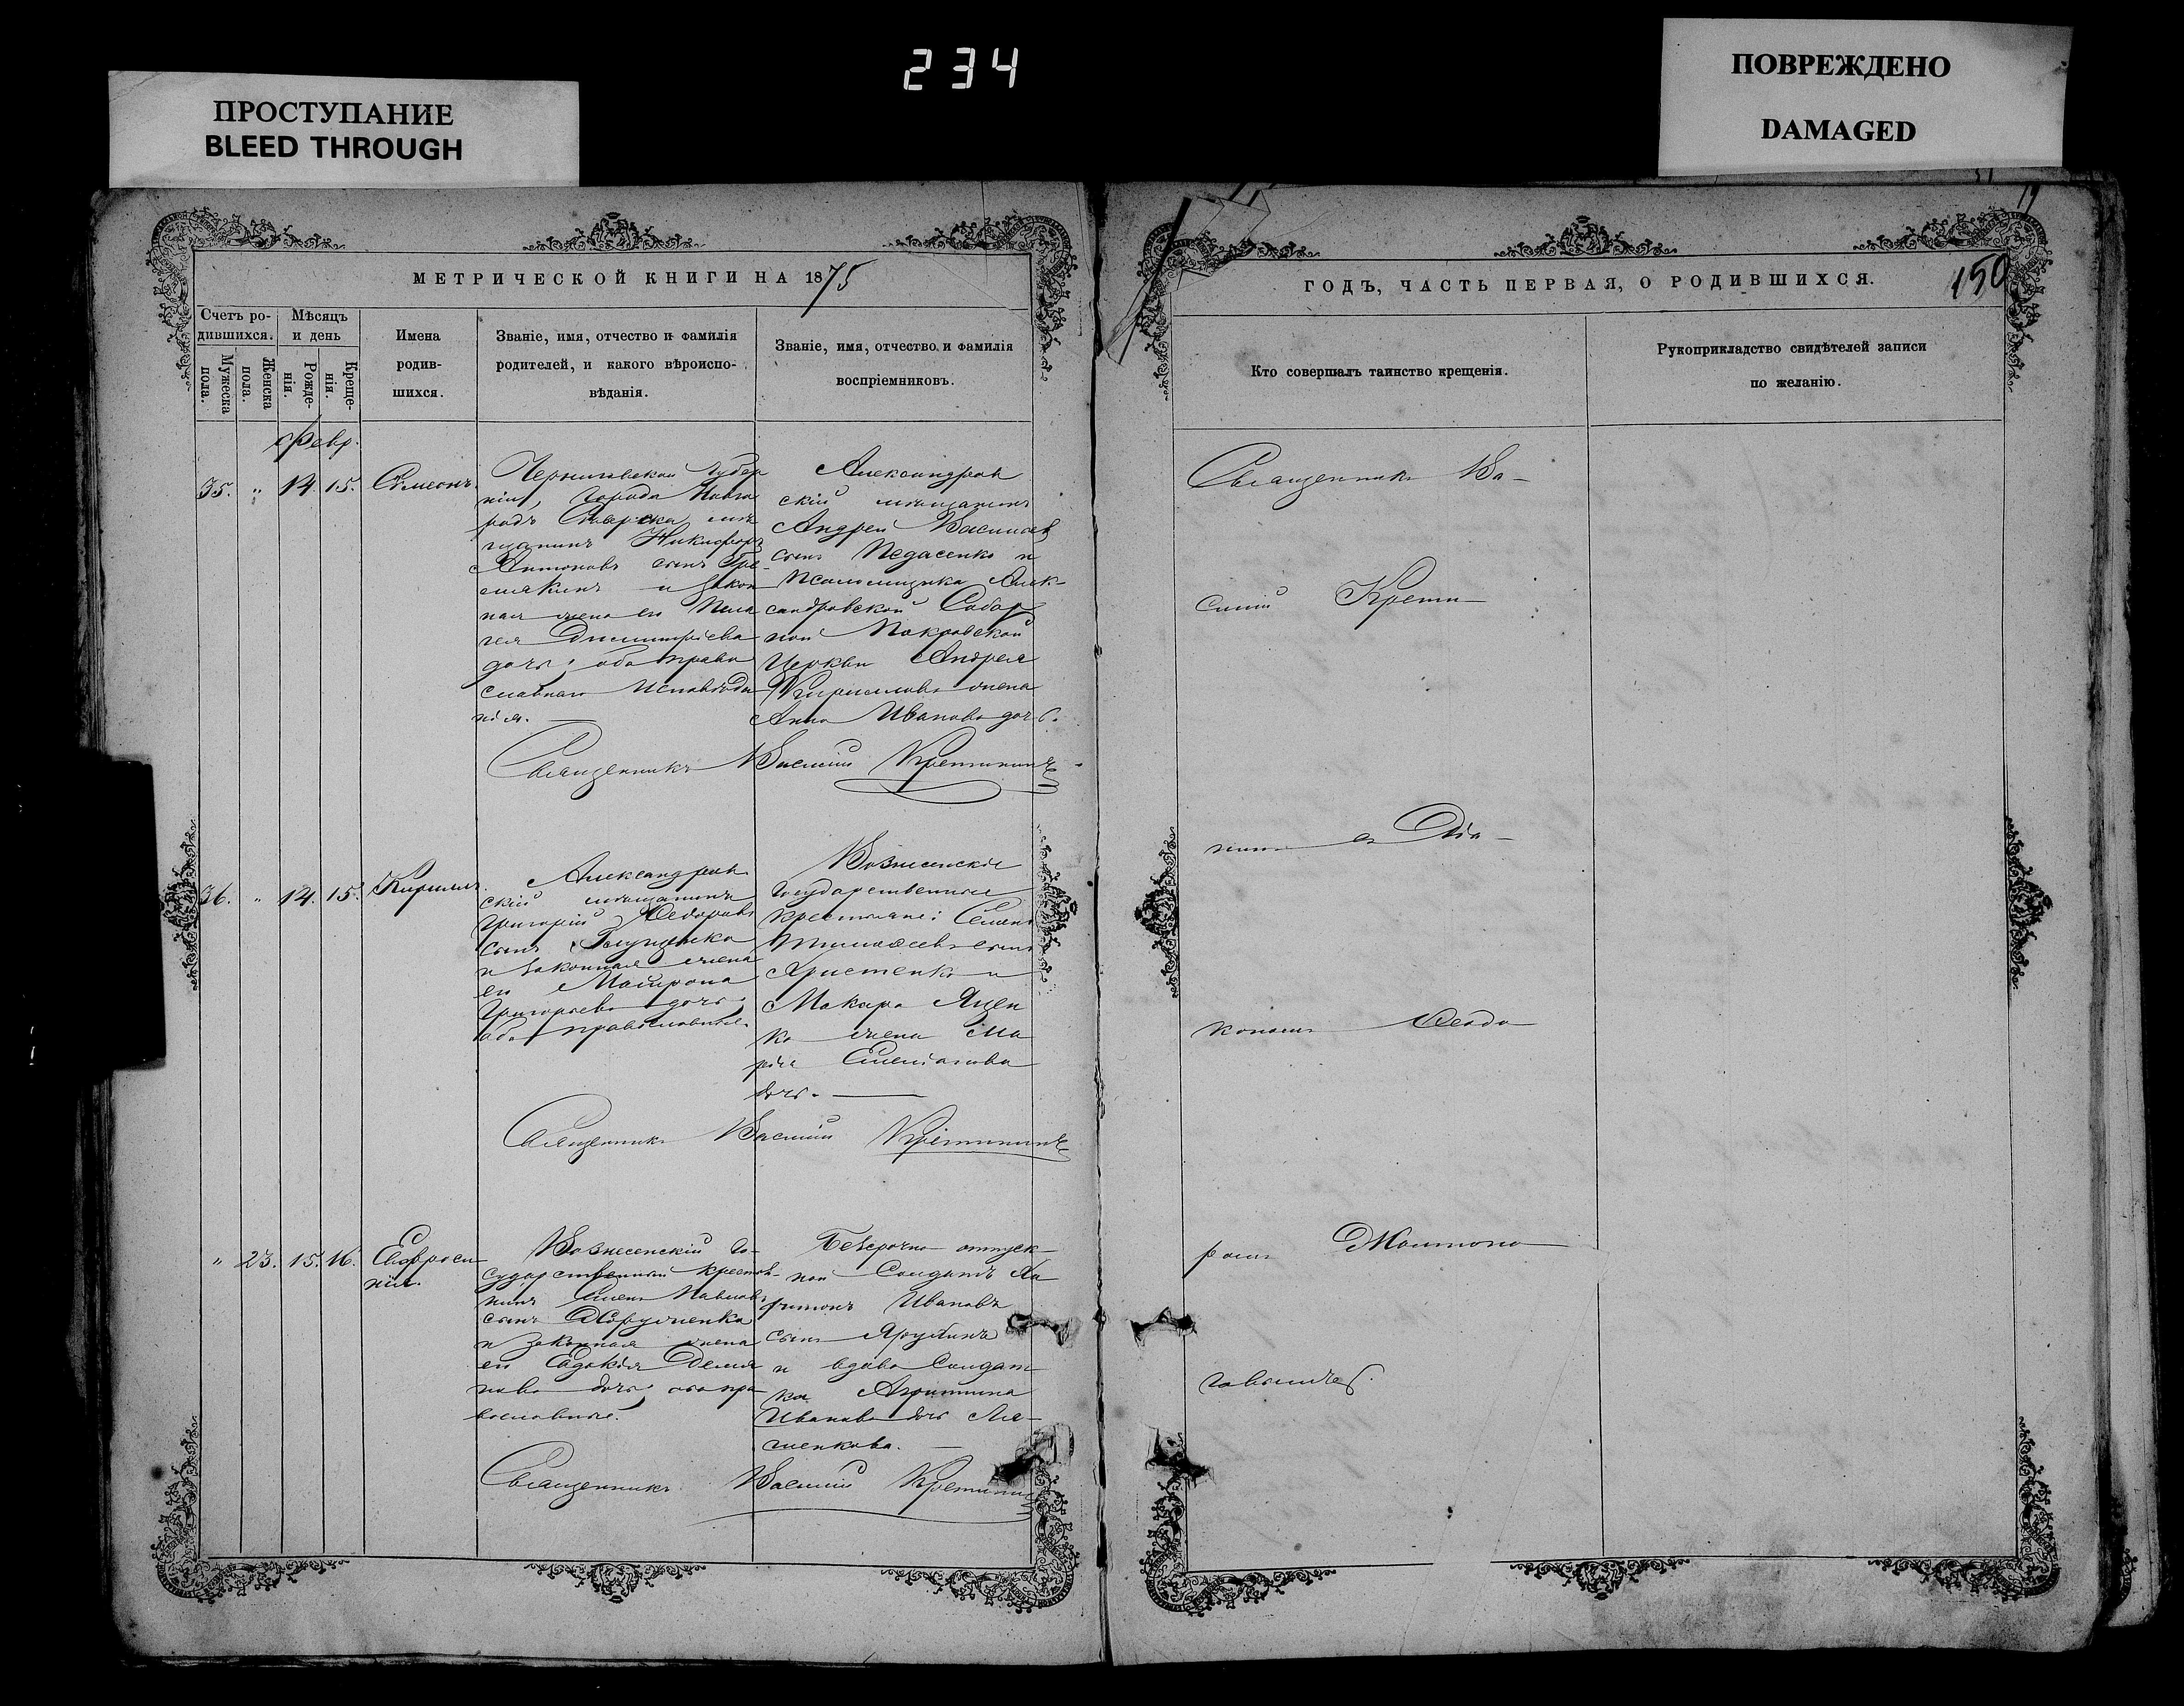 234
ПРОСТУПАНИЕ
BLEED THROUGH
ПОВРЕЖДЕНО
DAMAGED
МЕТРИЧЕСКОЙ КНИГИ НА 1875
Счетъ ро-
дившихся.
Мужеска
пола.
Женска
пола.
Мѣсяцъ
и день
Рожде-
нія.
Креще-
нія.
Имена
родив-
шихся.
Званіе, имя, отчество и фамилія
родителей, и какого вѣроиспо-
вѣданія.
Званіе, имя, отчество и фамилія
воспріемниковъ.
Февр.
35. " 14. 15. Симеонъ.
Черниговской Губер
ніи, города Новго
родъ Сѣверска мѣ
щанинъ Никифоръ
Антоновъ сынъ
и закон
ная жена его Пела
гея Димитріева
дочь; оба право
славнаго исповѣда
нія.
Александров
скій мѣщанинъ
Андрей Васильевъ
сынъ Педасенко и
псаломщика Алек-
сандровской Собор
ной Покровской
Церкви Андрея
Кириллова жена
Анна Иванова дочь.
Священникъ Василій Кретининъ
36. " 14. 15. Кириллъ.
Александров
скій мѣщанинъ
Григорій Ѳедоровъ
сынъ
и законная жена
его Матрона
Григорьева дочь;
оба православные.
Вознесенскіе
Государственные
крестьяне: Семенъ
Тимоѳеевъ сынъ
Христенко и
Макара Яцен
ко жена Ма
рія Емельянова
дочь.
Священникъ Василій Кретининъ
" 23. 15. 16. Евфроси
нія.
Вознесенскій Го-
сударственный крестья-
нинъ Павловъ
сынъ
и законная жена
его Евдокія Демья
нова дочь; оба пра
вославные.
Безсрочно отпуск-
ной Солдатъ Ха
ритонъ Ивановъ
сынъ
и вдова Солдат
ка Агриппина
Иванова дочь
Священникъ Василій Кретининъ
ГОДЪ, ЧАСТЬ ПЕРВАЯ, О РОДИВШИХСЯ.
150
Кто совершалъ таинство крещенія.
Рукоприкладство свидѣтелей записи
по желанію.
Священникъ Ва-
силій Крети-
нинъ съ Діа-
кономъ Ѳеодо-
ромъ Жолтоно-
говымъ.